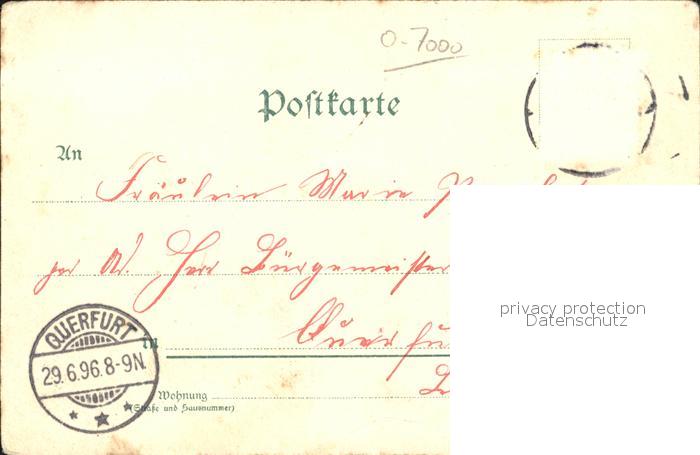 0-7000
Postkarte
An
Fräulein Marie
per Ad. Herr Bürgermeister
privacy protection
Datenschutz
in
QUERFURT
29.6.96.8-9N.
Wohnung
(Straße und Hausnummer)